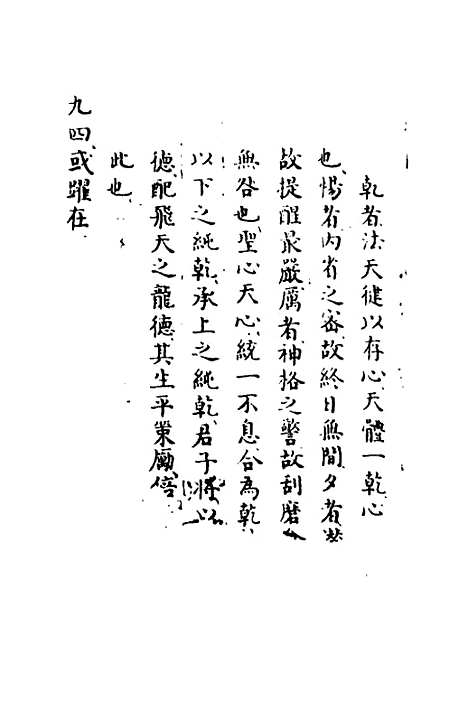 乾者法天健以存心天體一乾心
也惕者內省之密故終日無間夕者
故提醒最嚴厲者神格之警故刮磨
無咎也聖心天心統一不息合為乾
以下之純乾承上之純乾君子將以
德配飛天之龍德其生平策勵倍
此也
九四或躍在